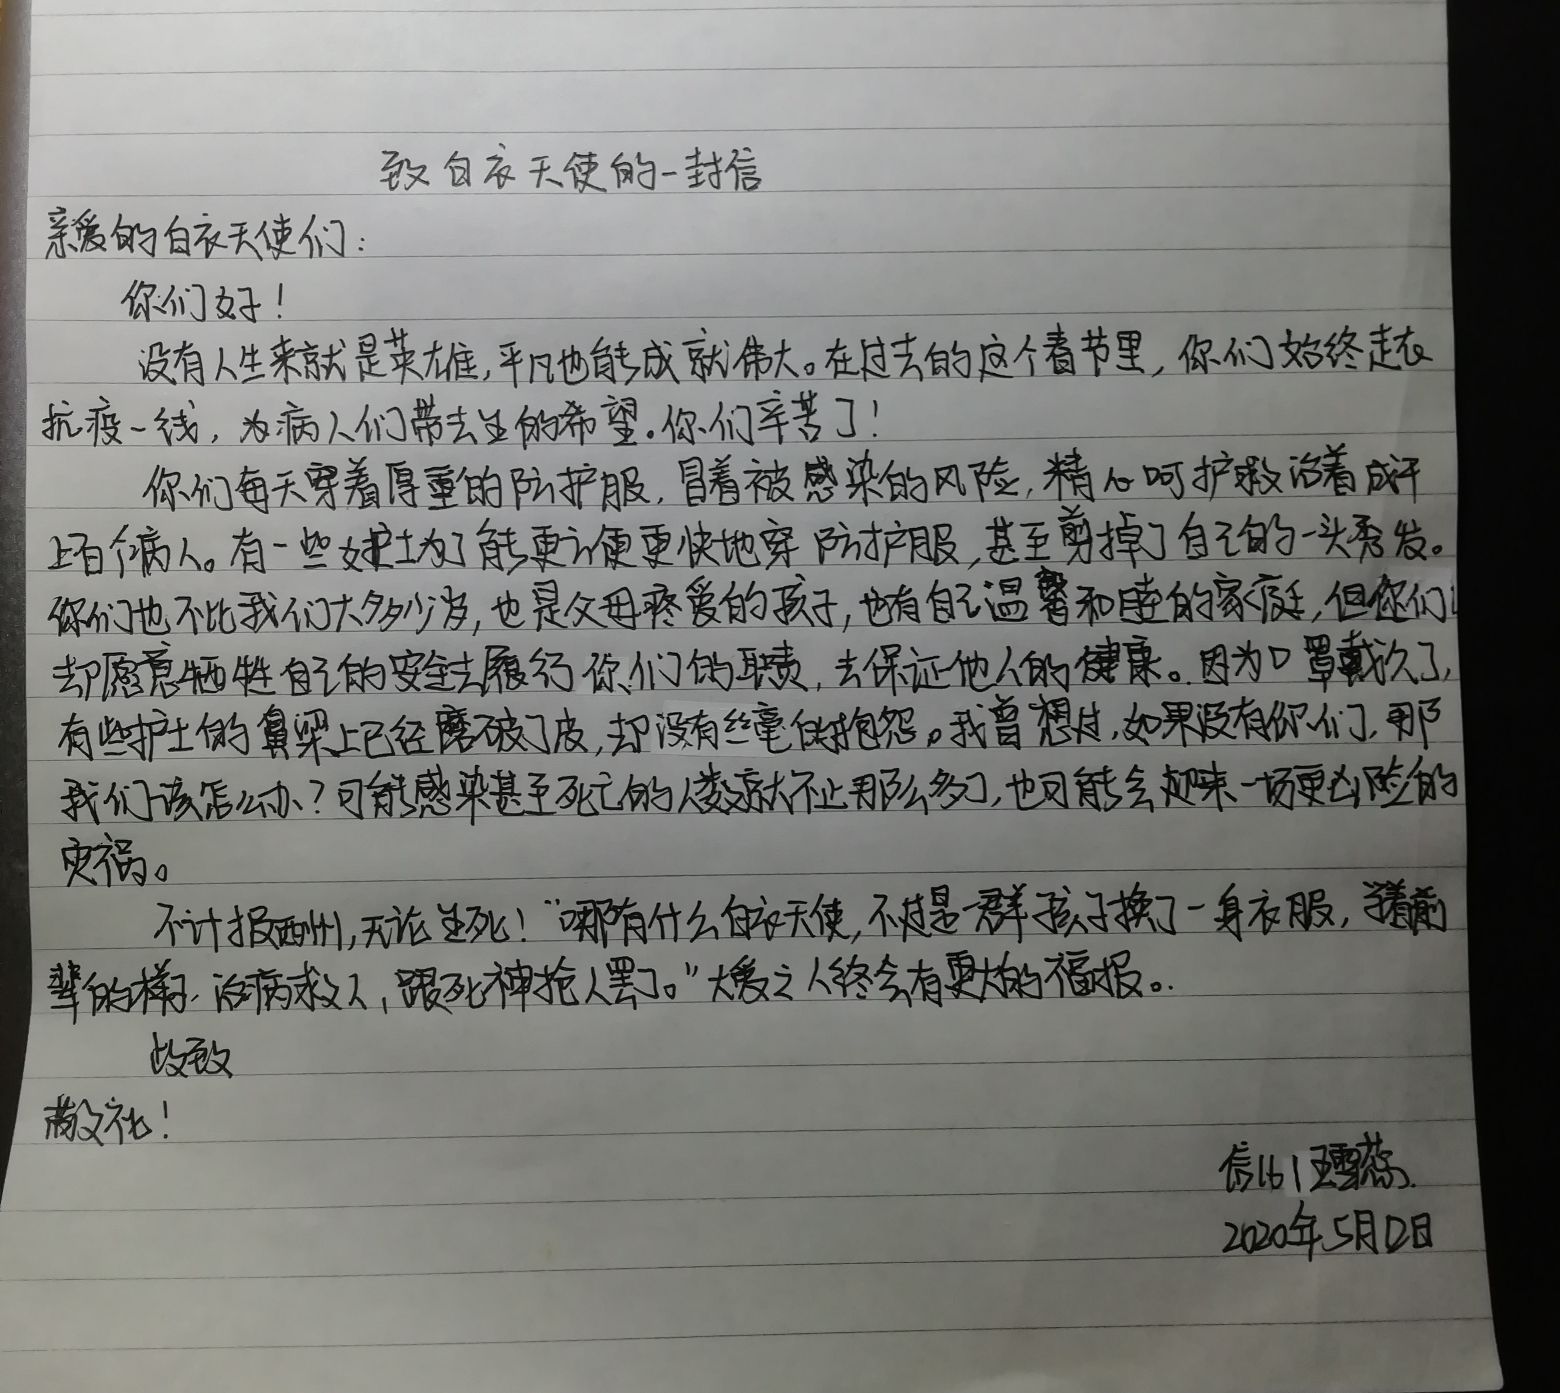 致白衣天使的一封信
亲爱的白衣天使们：
你们好！
没有人生来就是英雄，平凡也能成就伟大。在过去的这个春节里，你们始终走在
抗疫一线，为病人们带去生的希望。你们辛苦了！
你们每天穿着厚重的防护服，冒着被感染的风险，精心呵护救治着成千
上百个病人。有一些护士为了能更方便更快地穿防护服，甚至剪掉了自己的一头秀发。
你们也不比我们大多少岁，也是父母疼爱的孩子，也有自己温馨和睦的家庭，但你们
却愿意牺牲自己的安全去履行你们的职责，去保证他人的健康。因为口罩戴久了，
有些护士的鼻梁上已经磨破了皮，却没有丝毫抱怨。我曾想过，如果没有你们，那
我们该怎么办？可能感染甚至死亡的人数就不止那么多了，也可能会迎来一场更凶险的
灾祸。
不计报酬，无论生死！“哪有什么白衣天使，不过是一群孩子换了一身衣服，学着前
辈的样子，治病救人，跟死神抢人罢了。”大爱之人终会有更大的福报。
此致
敬礼！
信161 王雪蓉
2020年5月12日